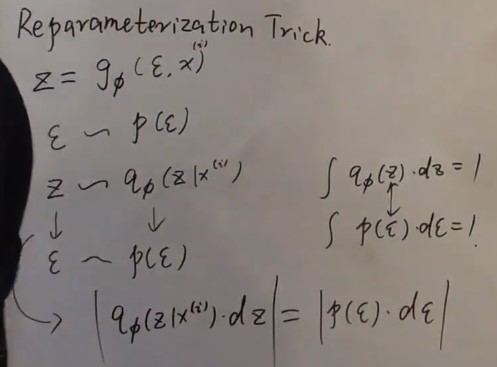 Reparameterization Trick.
z = g_ϕ(ε, x^(i))
ε ~ p(ε)
z ~ q_ϕ(z|x^(i))
↓ ↓
ε ~ p(ε)
∫ q_ϕ(z)·dz = 1
↕
∫ p(ε)·dε = 1.
→ |q_ϕ(z|x^(i))·dz| = |p(ε)·dε|